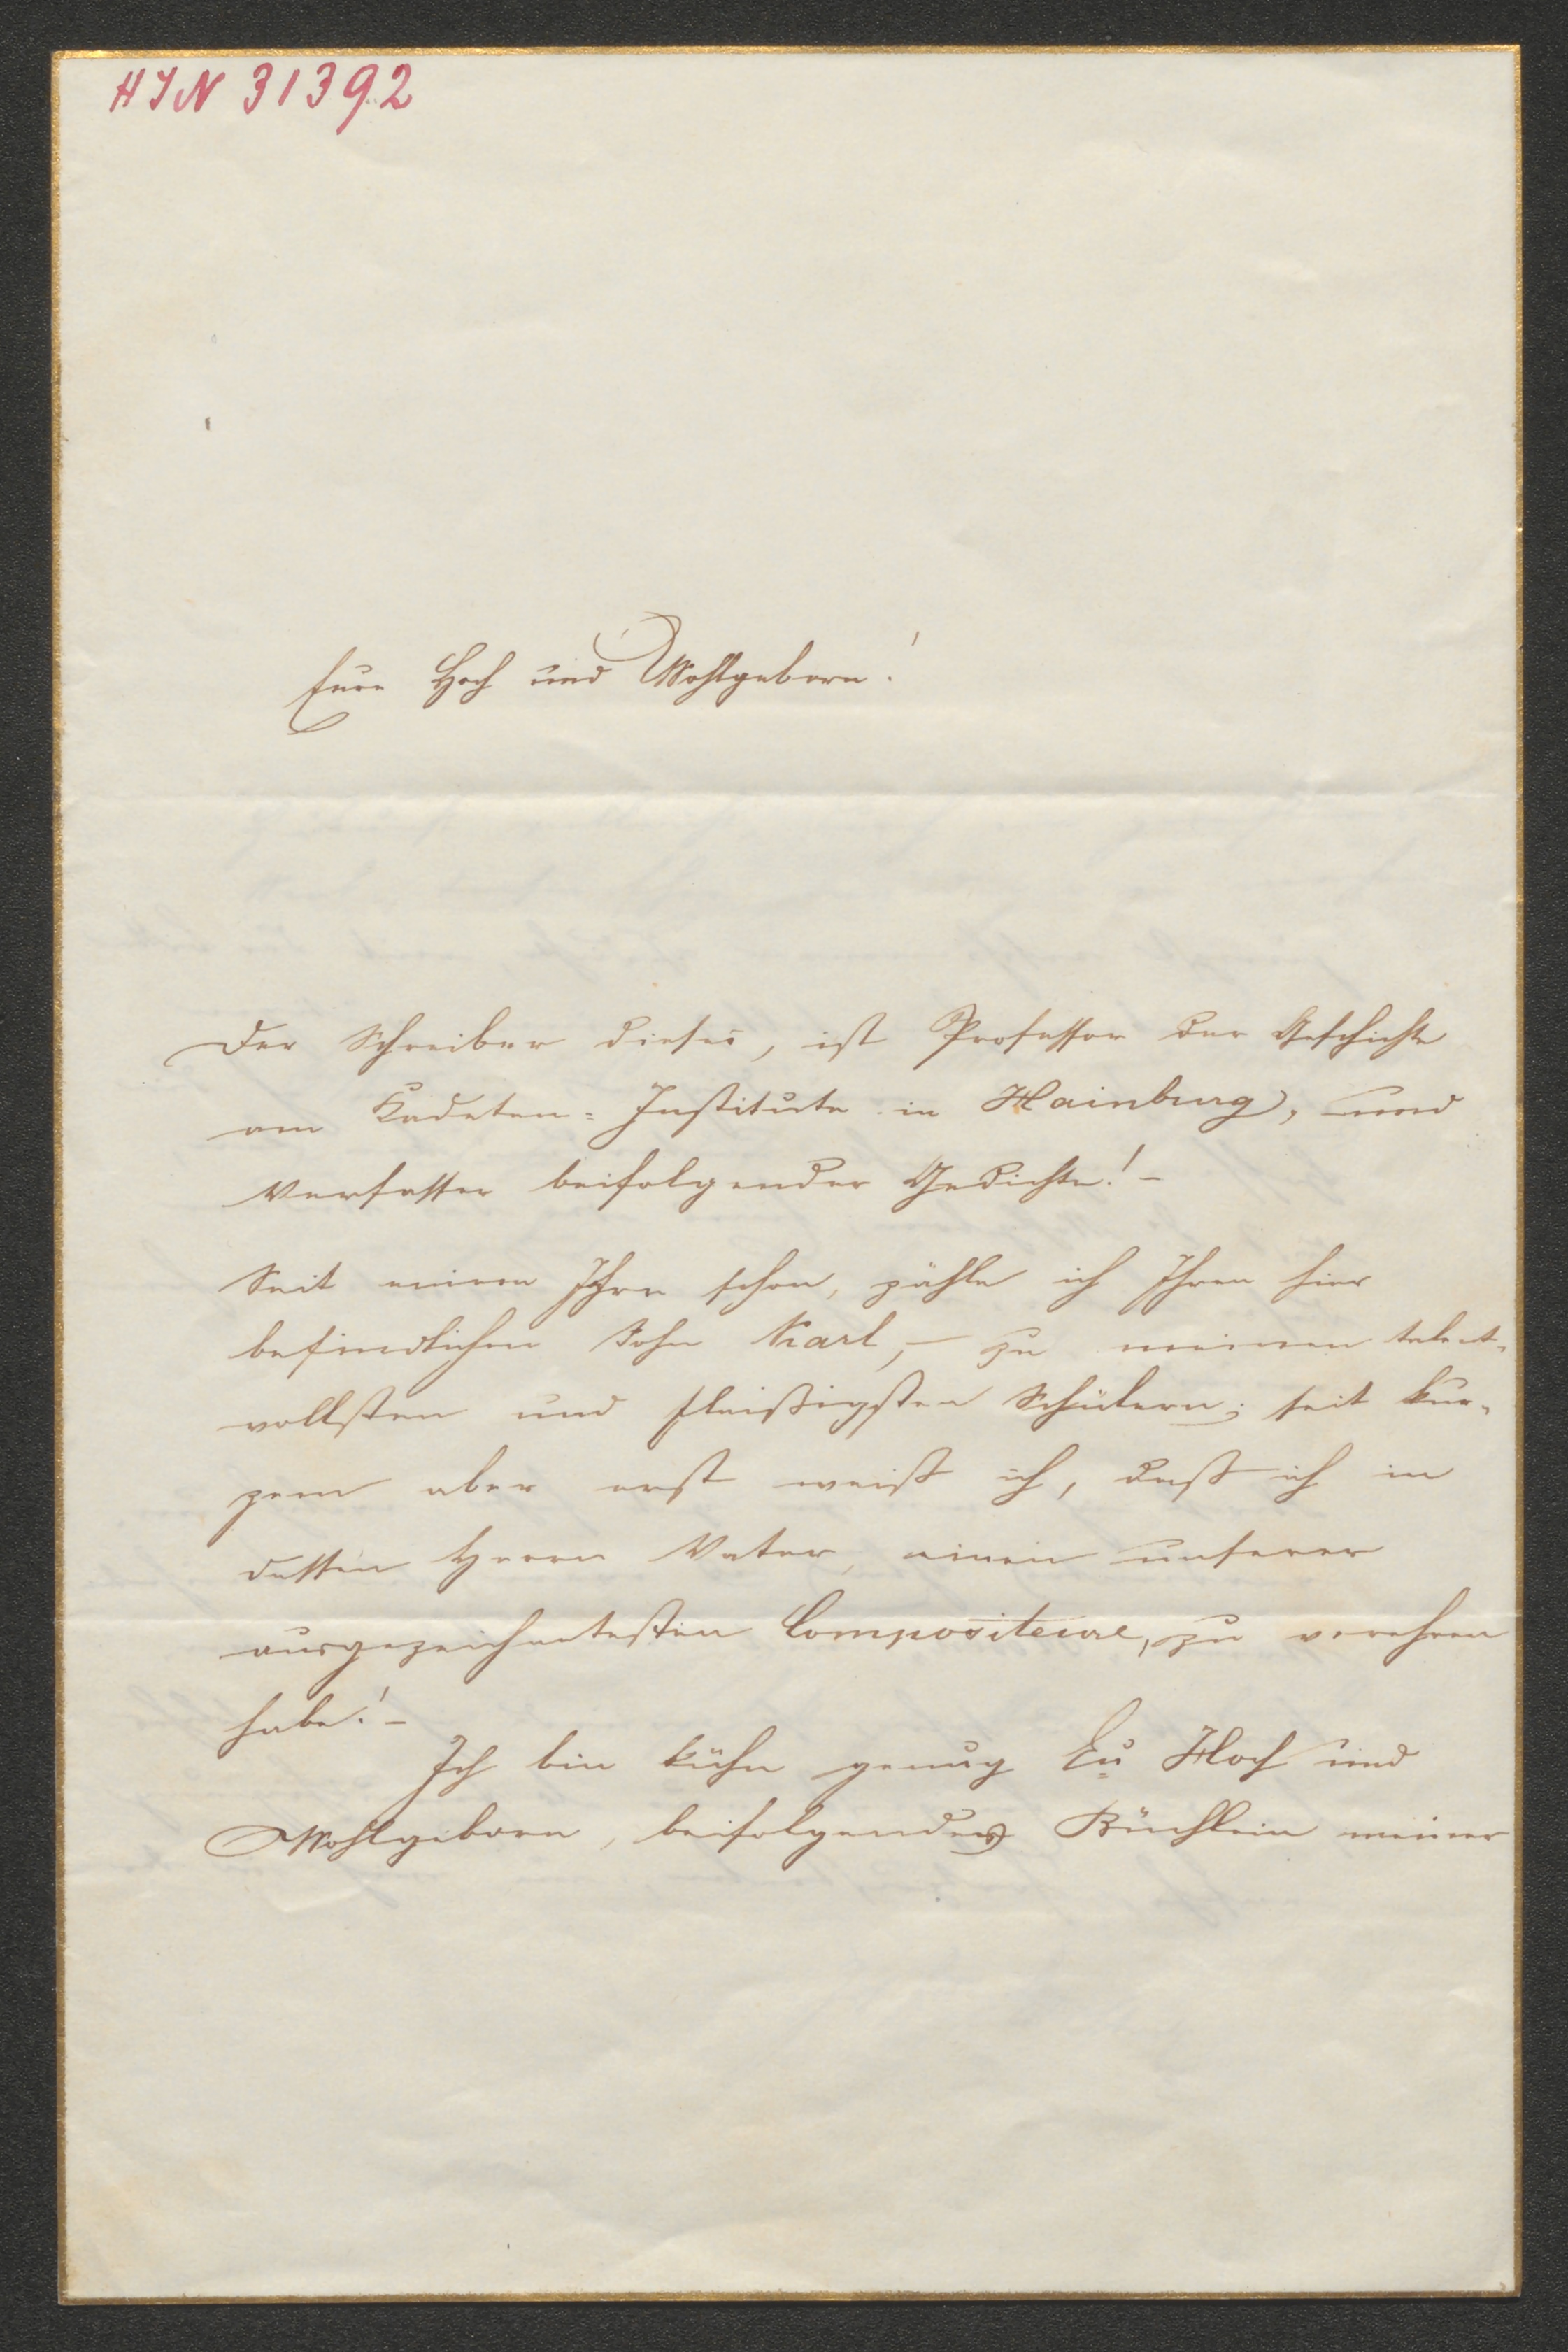 HIN 31392
Eure Hoch und Wohlgeborn!
Der Schreiber dieses, ist Professor der Geschichte
am Kadeten-Institute in Hainburg, und
Verfasser beifolgender Gedichte! –
Seit einem Jahre schon, zähle ich Ihren hier
befindlichen Sohn Karl, – zu meinen talent-
vollsten und fleißigsten Schülern; seit kur-
zem aber erst weiß ich, daß ich in
dessen Herrn Vater, einen unserer
ausgezeichnetesten Compositeure, zu verehren
habe! –
Ich bin kühn genug Eu Hoch und
Wohlgeborn, beifolgendes Büchlein meiner